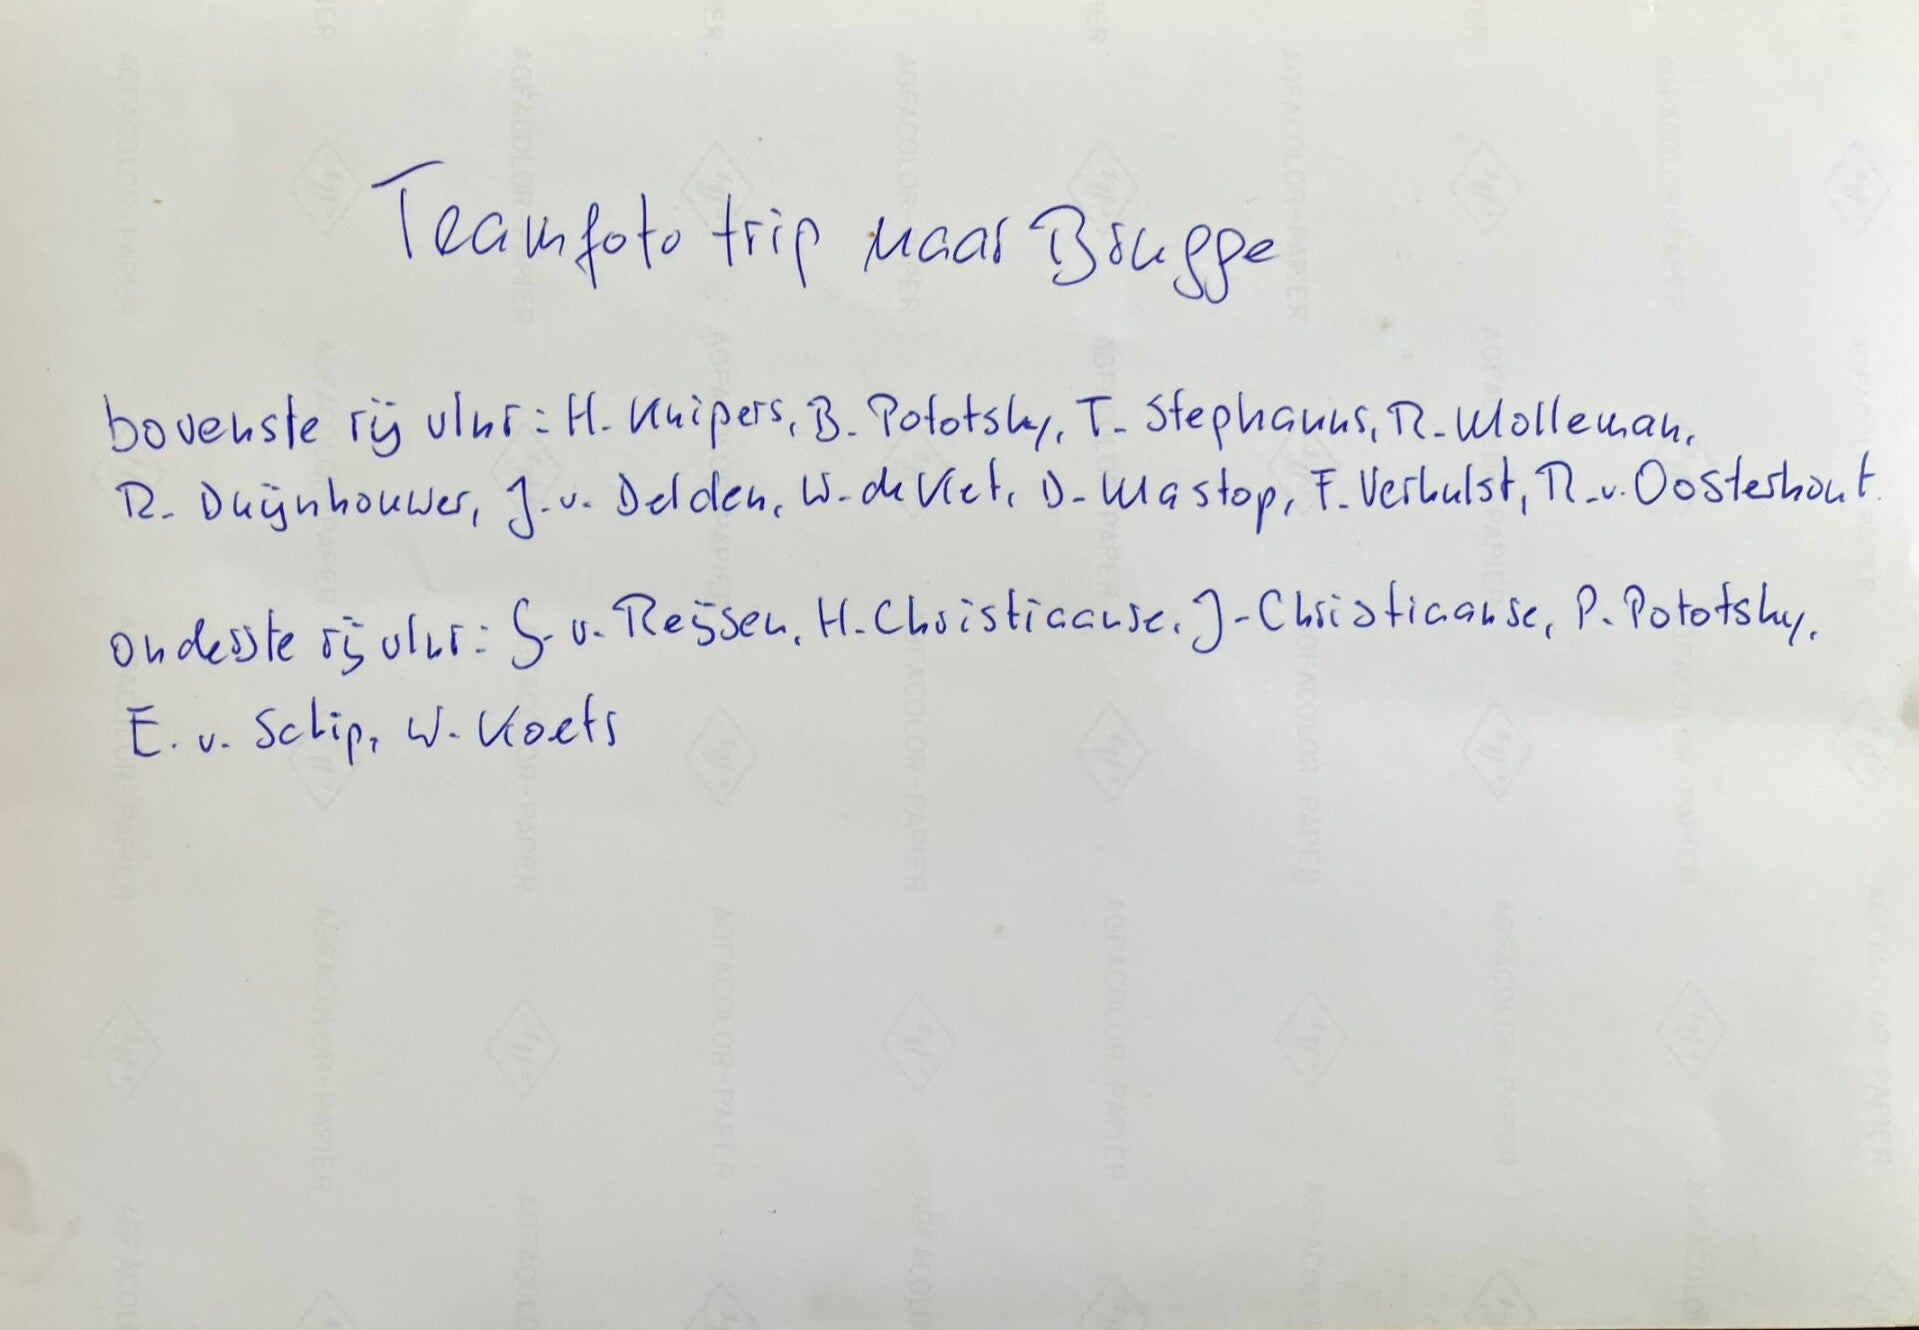 Teamfoto trip naar Brugge
bovenste rij vlnr: H. Kuipers, B. Pototsky, T. Stephanus, R. Molleman,
R. Duijnhouwer, J. v. Delden, W. de Vlet, D. Mastop, F. Verhulst, R. v. Oosterhout.
onderste rij vlnr: G. v. Reijsen, H. Christiaanse, J. Christiaanse, P. Pototsky,
E. v. Schip, W. Koets
AGFACOLOR-PAPIER